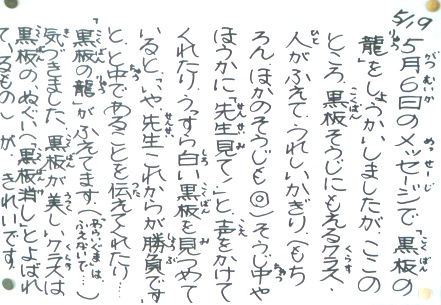 5/9
５月６日のメッセージで「黒板の
龍」をしょうかいしましたが、ここの
ところ、黒板そうじにもえるクラス、
人がふえて、うれしいかぎり。(もち
ろん、ほかのそうじも◎)そうじ中や
ほうかに「先生見て!」と声をかけて
くれたり、うっすら白い黒板を見つめて
いると、「いや、先生これからが勝負です」
と、と中であることを伝えてくれたり…
「黒板の龍」がふえてます。(「あらいぐま」は
ふえないで…)
気づきました、黒板が美しいクラスは
黒板のぬぐい(「黒板消し」とよばれ
ているもの)が、きれいです。